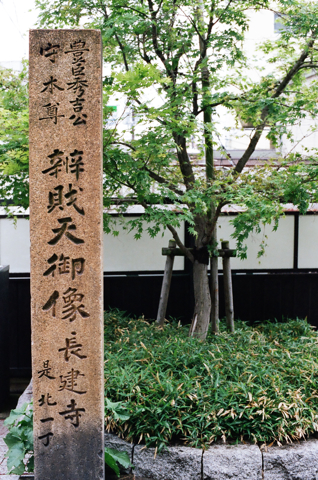 豊臣秀吉公
守本尊
辨財天御像長建寺
是北一丁